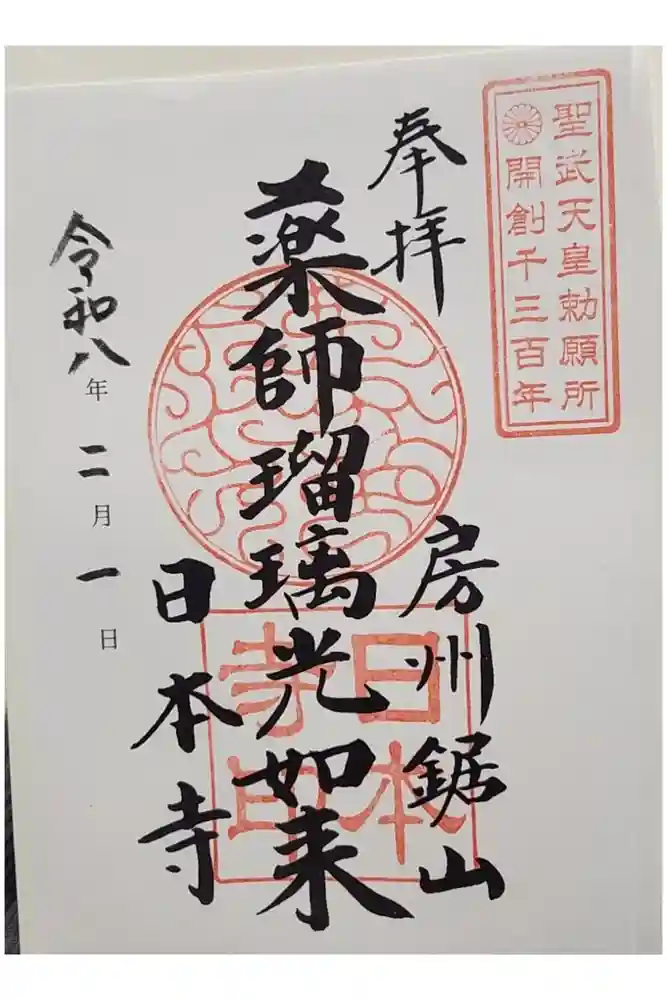 聖武天皇勅願所
開創千三百年
奉拝
房州鋸山
薬師瑠璃光如来
日本寺
日本寺印
令和八年二月一日